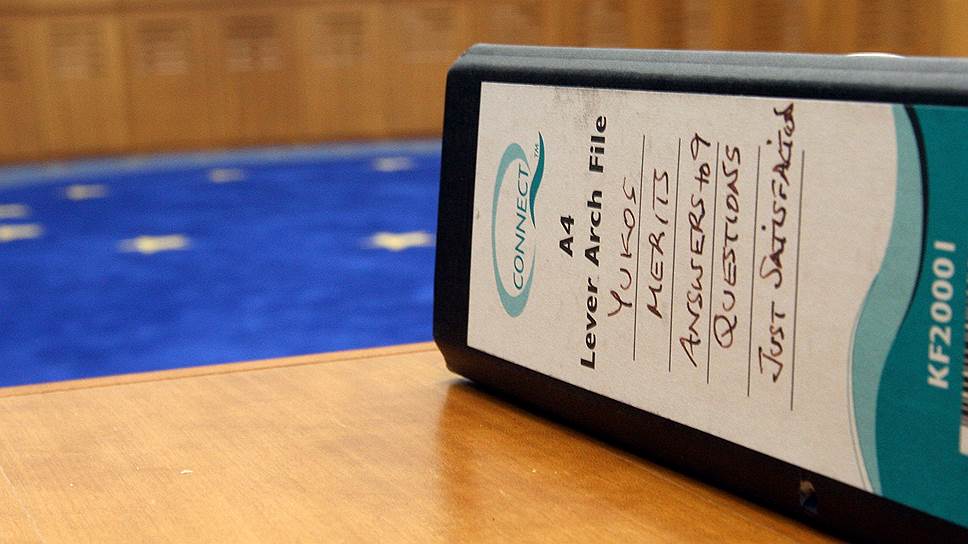 CONNECT™
A4
Lever Arch File
YUKOS
MERITS
ANSWERS to 9
QUESTIONS
JUST SATISFACTION
KF20001